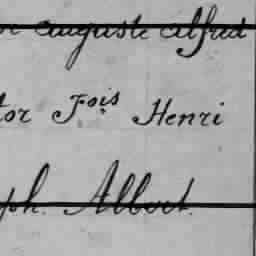 auguste alfred
tor Fois Henri
ph. Albert.